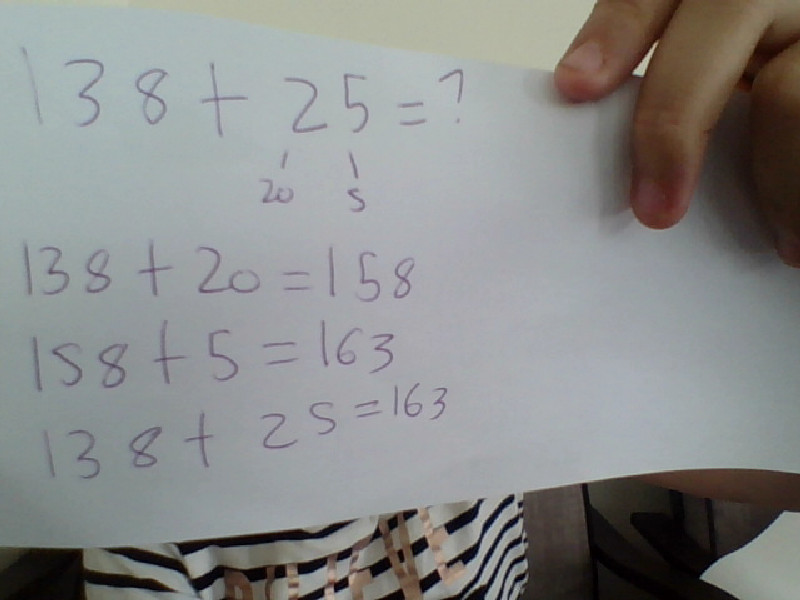 138 + 25 = ?
20 5
138 + 20 = 158
158 + 5 = 163
138 + 25 = 163